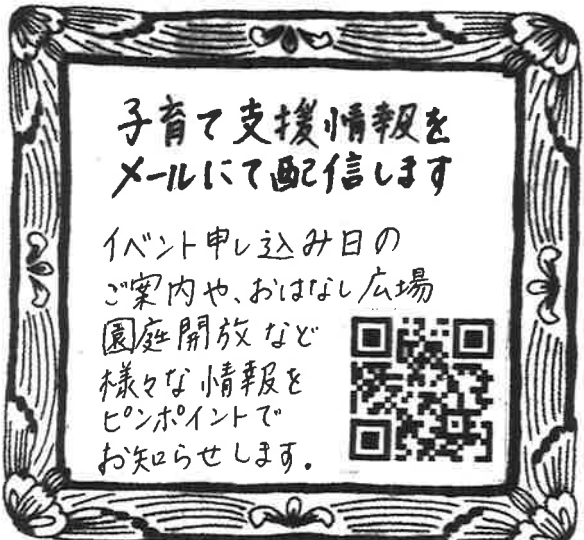 子育て支援情報を
メールにて配信します
イベント申し込み日の
ご案内や、おはなし広場
園庭開放など
様々な情報を
ピンポイントで
お知らせします。